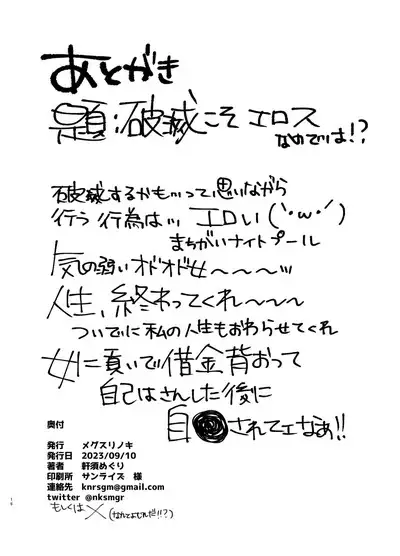 あとがき
題:破滅こそエロス
なのでは!?
破滅するかも…って思いながら
行う行為はッ、エロい(`･ω･´)
まちがいナイトプール
気の弱いオドオド女〜〜〜ッ
人生、終わってくれ〜〜〜
ついでに私の人生もおわらせてくれ
女に貢いで借金背おって
自己はさんした後に
自●されてェなぁ!!
奥付
発行 メグスリノキ
発行日 2023/09/10
著者 軒須めぐり
印刷所 サンライズ 様
連絡先 knrsgm@gmail.com
twitter @nksmgr
もしくはX(なんてよむんだ!!?)
19